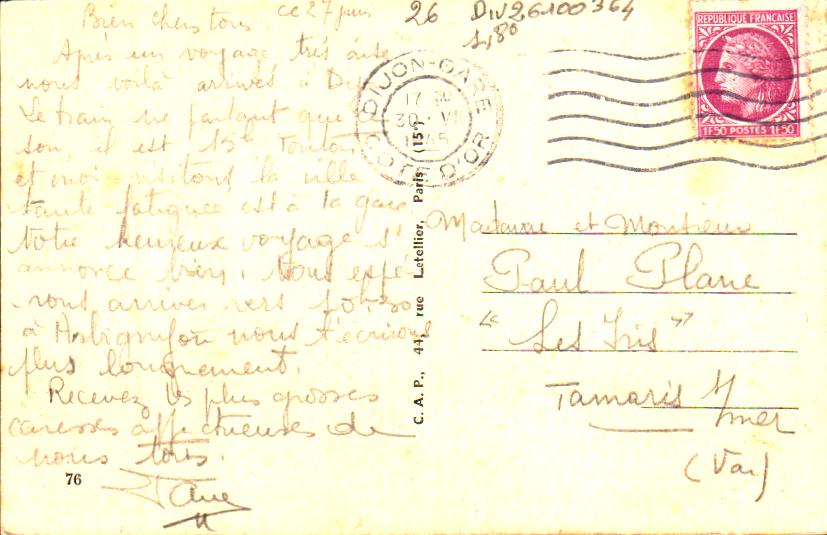 Bien chers tous ce 27 juin
Après un voyage très
nous voilà arrivés à
Le train ne partant que
soir, il est 15h, tonton
et moi visitons la ville
tante fatiguée est à la gare
Notre heureux voyage s'
annonce bien. Nous espé-
rons arriver vers
à nous t'écrirons
plus longuement.
Recevez les plus grosses
caresses affectueuses de
nous tous.
76
C. A. P., 44, rue Letellier, Paris (15e)
26 DIV26100364
1,80
DIJON-GARE
17 30
30 VII
COTE D'OR
REPUBLIQUE FRANÇAISE
1F50 POSTES 1F50
Madame et Monsieur
Paul Plane
"Les Iris"
Tamaris s/
mer
(Var)